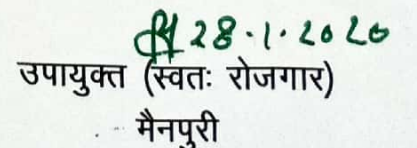 28.1.2020
उपायुक्त (स्वतः रोजगार)
मैनपुरी